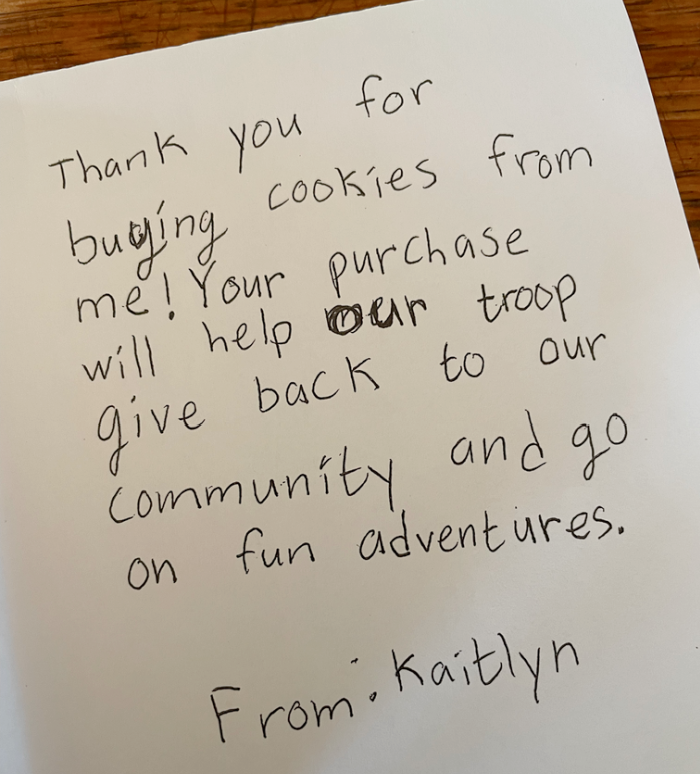 Thank you for
buying cookies from
me! Your purchase
will help our troop
give back to our
community and go
on fun adventures.
From: Kaitlyn